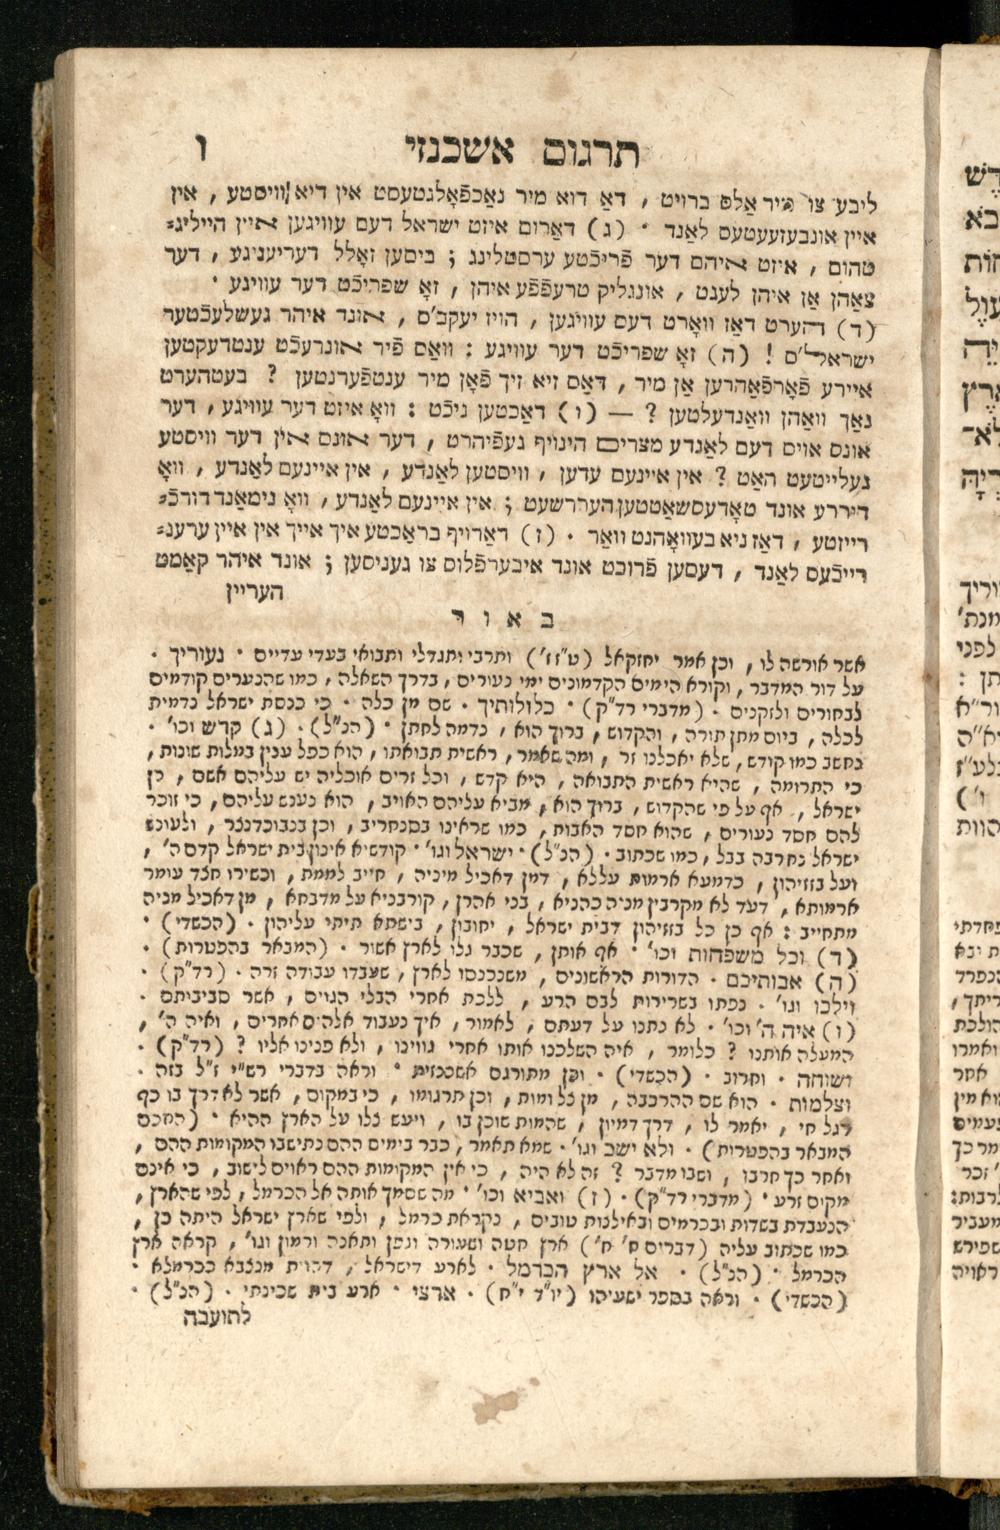 תרגום אשכנזי ו
ליבע צו מיר אַלס ברויט , דאַ דוא מיר נאַכפֿאָלגטעסט אין דיא וויסטע , אין
איין אונבעזעעטעס לאַנד · (ג) דאַרום איזט ישראל דעם עוויגען איין הייליג=
טהום , איזט איהם דער פֿריכֿטע ערסטלינג ; ביסען זאָלל דעריעניגע , דער
צאַהן אַן איהן לעגט , אונגליק טרעפֿפֿע איהן , זאָ שפריכֿט דער עוויגע ·
(ד) הערט דאַז וואָרט דעם עוויגען , הויז יעקב'ס , אונד איהר געשלעכֿטער
ישראל'ס ! (ה) זאָ שפריכֿט דער עוויגע : וואַס פֿיר אונרעכֿט ענטדעקטען
אייערע פֿאָרפֿאַהרען אַן מיר , דאַס זיא זיך פֿאָן מיר ענטפֿערנטען ? בעטהערט
נאַך וואַהן וואַנדעלטען ? — (ו) דאַכטען ניכֿט : וואָ איזט דער עוויגע , דער
אונס אויס דעם לאַנדע מצרים הינויף געפֿיהרט , דער אונס אין דער וויסטע
געלייטעט האַט ? אין איינעם עדען , וויסטען לאַנדע , אין איינעם לאַנדע , וואָ
דיררע אונד טאָדעסשאַטטען הערשעט ; אין איינעם לאַנדע , וואָ נימאַנד דורכֿ=
רייזטע , דאַז ניא בעוואָהנט וואַר · (ז) דאַרויף בראַכטע איך אייך אין איין ערענ=
רייכֿעס לאַנד , דעסען פֿרוכט אונד איבערפֿלוס צו געניסען ; אונד איהר קאַמט
העריין
באור
אשר אורשה לו , וכן אמר יחזקאל (ט"ז ז') ותרבי ותגדלי ותבואי בעדי עדיים · נעוריך ·
על דור המדבר , וקורא הימים הקדמונים ימי נעורים , בדרך השאלה , כמו שהנערים קודמים
לבחורים ולזקנים · (מדברי רד"ק) · כלולותיך · שם מן כלה · כי כנסת ישראל נדמית
לכלה , ביום מתן תורה , והקדוש , ברוך הוא , נדמה לחתן · (הנ"ל) · (ג) קדש וכו' ·
נחשב כמו קודש , שלא יאכלנו זר , ומה שאמר , ראשית תבואתו , הוא כפל ענין במלות שונות ,
כי התרומה , שהיא ראשית התבואה , היא קדש , וכל זרים אוכליה יש עליהם אשם , כן
ישראל , אף על פי שהקדוש , ברוך הוא , מביא עליהם האויב , הוא נענש עליהם , כי זוכר
להם חסד נעורים , שהוא חסד האבות , כמו שראינו בסנחריב , וכן בנבוכדנצר , ולעונש
ישראל נחרבה בבל , כמו שכתוב · (הנ"ל) · ישראל וגו' · קודשיא אינון בית ישראל קדם ה' ,
ועל בזזיהון , כדמעא ארמות עללא , דמן דאכיל מיניה , חייב לממת , וכשירו חצד עומר
ארמותא , דעד לא מקרבין מניה כהניא , בני אהרן , קורבניא על מדבחא , מן דאכיל מניה
מתחייב : אף כן כל בזזיהון דבית ישראל , יחובון , בישתא תיתי עליהון · (הכשדי) ·
(ד) וכל משפחות וכו' · אף אותן , שכבר גלו לארץ אשור · (המבאר בהפטרות) ·
(ה) אבותיכם · הדורות הראשונים , משנכנסו לארץ , שעבדו עבודה זרה · (רד"ק) ·
וילכו וגו' · נפתו בשרירות לבם הרע , ללכת אחרי הבלי הגוים , אשר סביבותם ·
(ו) איה ה' וכו' · לא נתנו על דעתם , לאמור , איך נעבוד אלהים אחרים , ואיה ה' ,
המעלה אותנו ? כלומר , איה השלכנו אותו אחרי גווינו , ולא פנינו אליו ? (רד"ק) ·
ושוחה · וחרוב · (הכשדי) · וכן מתורגם אשכנזית · וראה בדברי רש"י ז"ל בזה ·
וצלמות · הוא שם ההרכבה , מן צל ומות , וכן תרגומו , כי במקום , אשר לא דרך בו כף
רגל חי , יאמר לו , דרך דמיון , שהמות שוכן בו , ויעש צלו על הארץ ההיא · (החכם
המבאר בהפטרות) · ולא ישב וגו' · שמא תאמר , כבר בימים ההם נתישבו המקומות ההם ,
ואחר כך חרבו , ושבו מדבר ? זה לא היה , כי אין המקומות ההם ראוים לישוב , כי אינם
מקום זרע · (מדברי רד"ק) · (ז) ואביא וכו' · מה שסמך אותה אל הכרמל , לפי שהארץ ,
הנעבדת בשדות ובכרמים ובאילנות טובים , נקראת כרמל , ולפי שארץ ישראל היתה כן ,
כמו שכתוב עליה (דברים ח' ח') ארץ חטה ושעורה וגפן ותאנה ורמון וגו' , קראה ארץ
הכרמל · (הנ"ל) · אל ארץ הכרמל · לארע דישראל , דהוית מנצבא ככרמלא ·
(הכשדי) · וראה בספר ישעיהו (יו"ד י"ח) · ארצי · ארע בית שכינתי · (הנ"ל) ·
לתועבה